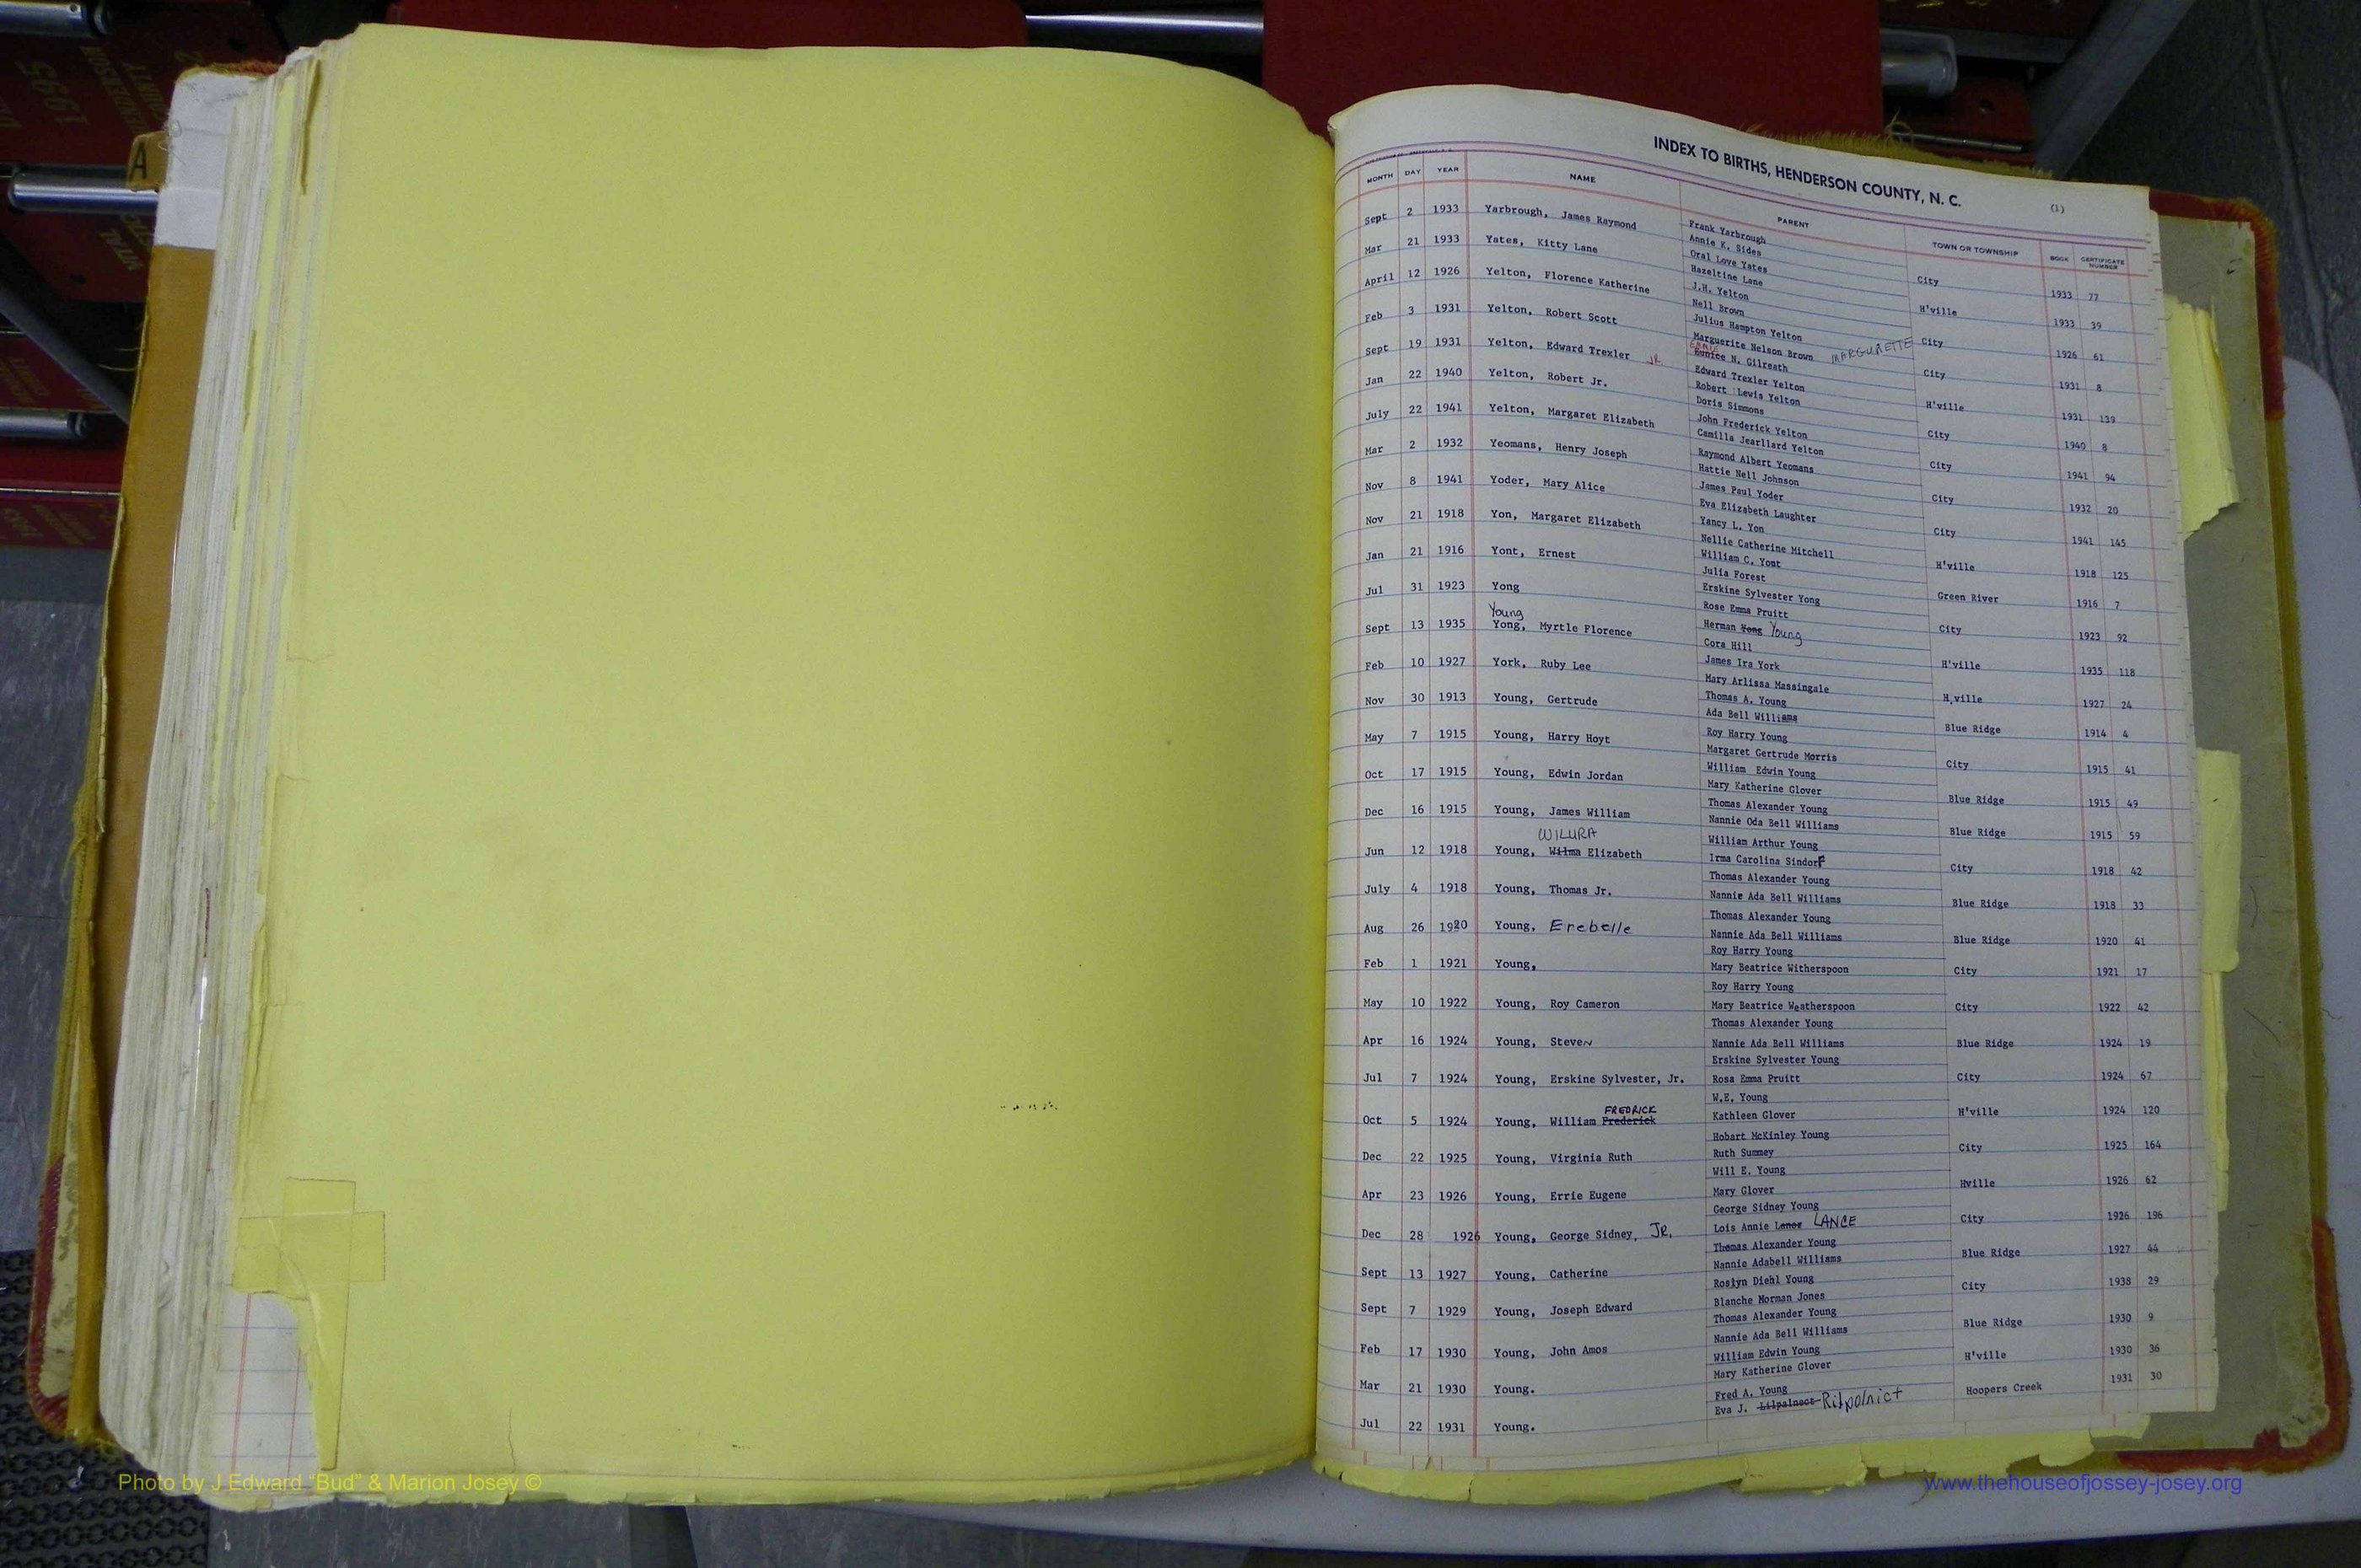 INDEX TO BIRTHS, HENDERSON COUNTY, N. C.
(1)
MONTH DAY YEAR NAME PARENT TOWN OR TOWNSHIP BOOK CERTIFICATE NUMBER
Sept 2 1933 Yarbrough, James Raymond Frank Yarbrough City 1933 77
Annie K. Sides
Mar 21 1933 Yates, Kitty Lane Oral Love Yates H'ville 1933 39
Hazeltine Lane
April 12 1926 Yelton, Florence Katherine J.H. Yelton City 1926 61
Nell Brown
Feb 3 1931 Yelton, Robert Scott Julius Hampton Yelton City 1931 8
Marguerite Nelson Brown MARGURETTE
Sept 19 1931 Yelton, Edward Trexler JR Eunice N. Gilreath H'ville 1931 139
Edward Trexler Yelton
Jan 22 1940 Yelton, Robert Jr. Robert Lewis Yelton City 1940 8
Doris Simmons
July 22 1941 Yelton, Margaret Elizabeth John Frederick Yelton City 1941 94
Camilla Jearllard Yelton
Mar 2 1932 Yeomans, Henry Joseph Raymond Albert Yeomans City 1932 20
Hattie Nell Johnson
Nov 8 1941 Yoder, Mary Alice James Paul Yoder City 1941 145
Eva Elizabeth Laughter
Nov 21 1918 Yon, Margaret Elizabeth Yancy L. Yon H'ville 1918 125
Nellie Catherine Mitchell
Jan 21 1916 Yont, Ernest William C. Yont Green River 1916 7
Julia Forest
Jul 31 1923 Yong Erskine Sylvester Yong City 1923 92
Rose Emma Pruitt
Young
Sept 13 1935 Yong, Myrtle Florence Herman Yong Young H'ville 1935 118
Cora Hill
Feb 10 1927 York, Ruby Lee James Ira York H,ville 1927 24
Mary Arlissa Massingale
Nov 30 1913 Young, Gertrude Thomas A. Young Blue Ridge 1914 4
Ada Bell Williams
May 7 1915 Young, Harry Hoyt Roy Harry Young City 1915 41
Margaret Gertrude Morris
Oct 17 1915 Young, Edwin Jordan William Edwin Young Blue Ridge 1915 49
Mary Katherine Glover
Dec 16 1915 Young, James William Thomas Alexander Young Blue Ridge 1915 59
Nannie Oda Bell Williams
WILURA
Jun 12 1918 Young, Wilma Elizabeth William Arthur Young City 1918 42
Irma Carolina SindorF
July 4 1918 Young, Thomas Jr. Thomas Alexander Young Blue Ridge 1918 33
Nannie Ada Bell Williams
Aug 26 1920 Young, Erebelle Thomas Alexander Young Blue Ridge 1920 41
Nannie Ada Bell Williams
Feb 1 1921 Young, Roy Harry Young City 1921 17
Mary Beatrice Witherspoon
May 10 1922 Young, Roy Cameron Roy Harry Young City 1922 42
Mary Beatrice Weatherspoon
Apr 16 1924 Young, Steven Thomas Alexander Young Blue Ridge 1924 19
Nannie Ada Bell Williams
Jul 7 1924 Young, Erskine Sylvester, Jr. Erskine Sylvester Young City 1924 67
Rosa Emma Pruitt
FREDRICK
Oct 5 1924 Young, William Frederick W.E. Young H'ville 1924 120
Kathleen Glover
Dec 22 1925 Young, Virginia Ruth Hobart McKinley Young City 1925 164
Ruth Summey
Apr 23 1926 Young, Errie Eugene Will E. Young Hville 1926 62
Mary Glover
Dec 28 1926 Young, George Sidney, JR. George Sidney Young City 1926 196
Lois Annie LANCE
Sept 13 1927 Young, Catherine Thomas Alexander Young Blue Ridge 1927 44
Nannie Adabell Williams
Sept 7 1929 Young, Joseph Edward Roslyn Diehl Young City 1938 29
Blanche Morman Jones
Feb 17 1930 Young, John Amos Thomas Alexander Young Blue Ridge 1930 9
Nannie Ada Bell Williams
Mar 21 1930 Young. William Edwin Young H'ville 1930 36
Mary Katherine Glover
Jul 22 1931 Young. Fred A. Young Hoopers Creek 1931 30
Eva J. Lilpalnect Rilpolnict
A
1995
Photo by J Edward “Bud” & Marion Josey ©
www.thehouseofjossey-josey.org